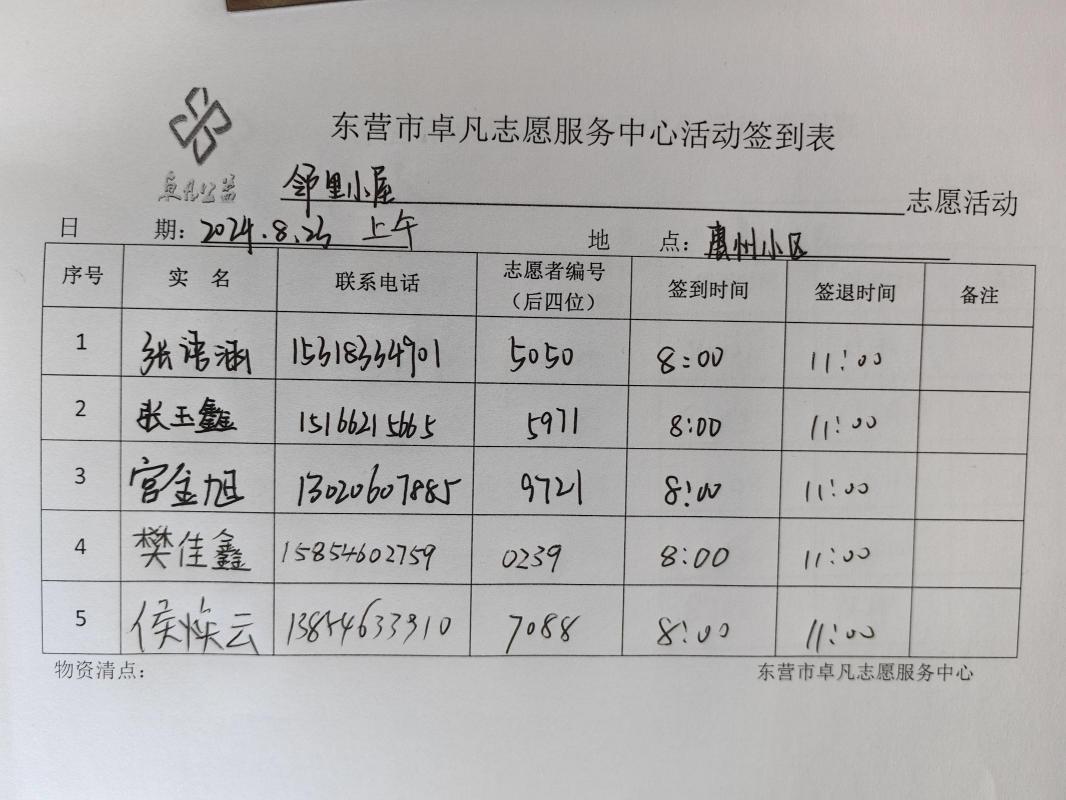 东营市卓凡志愿服务中心活动签到表
卓凡公益
邻里小屋 志愿活动
日 期：2024.8.23 上午 地 点：惠州小区
序号 实 名 联系电话 志愿者编号（后四位） 签到时间 签退时间 备注
1 张语涵 15318334901 5050 8:00 11:00
2 张玉鑫 15166215665 5971 8:00 11:00
3 宫金旭 13020607885 9721 8:00 11:00
4 樊佳鑫 15854602759 0239 8:00 11:00
5 侯焕云 13854633910 7088 8:00 11:00
物资清点： 东营市卓凡志愿服务中心